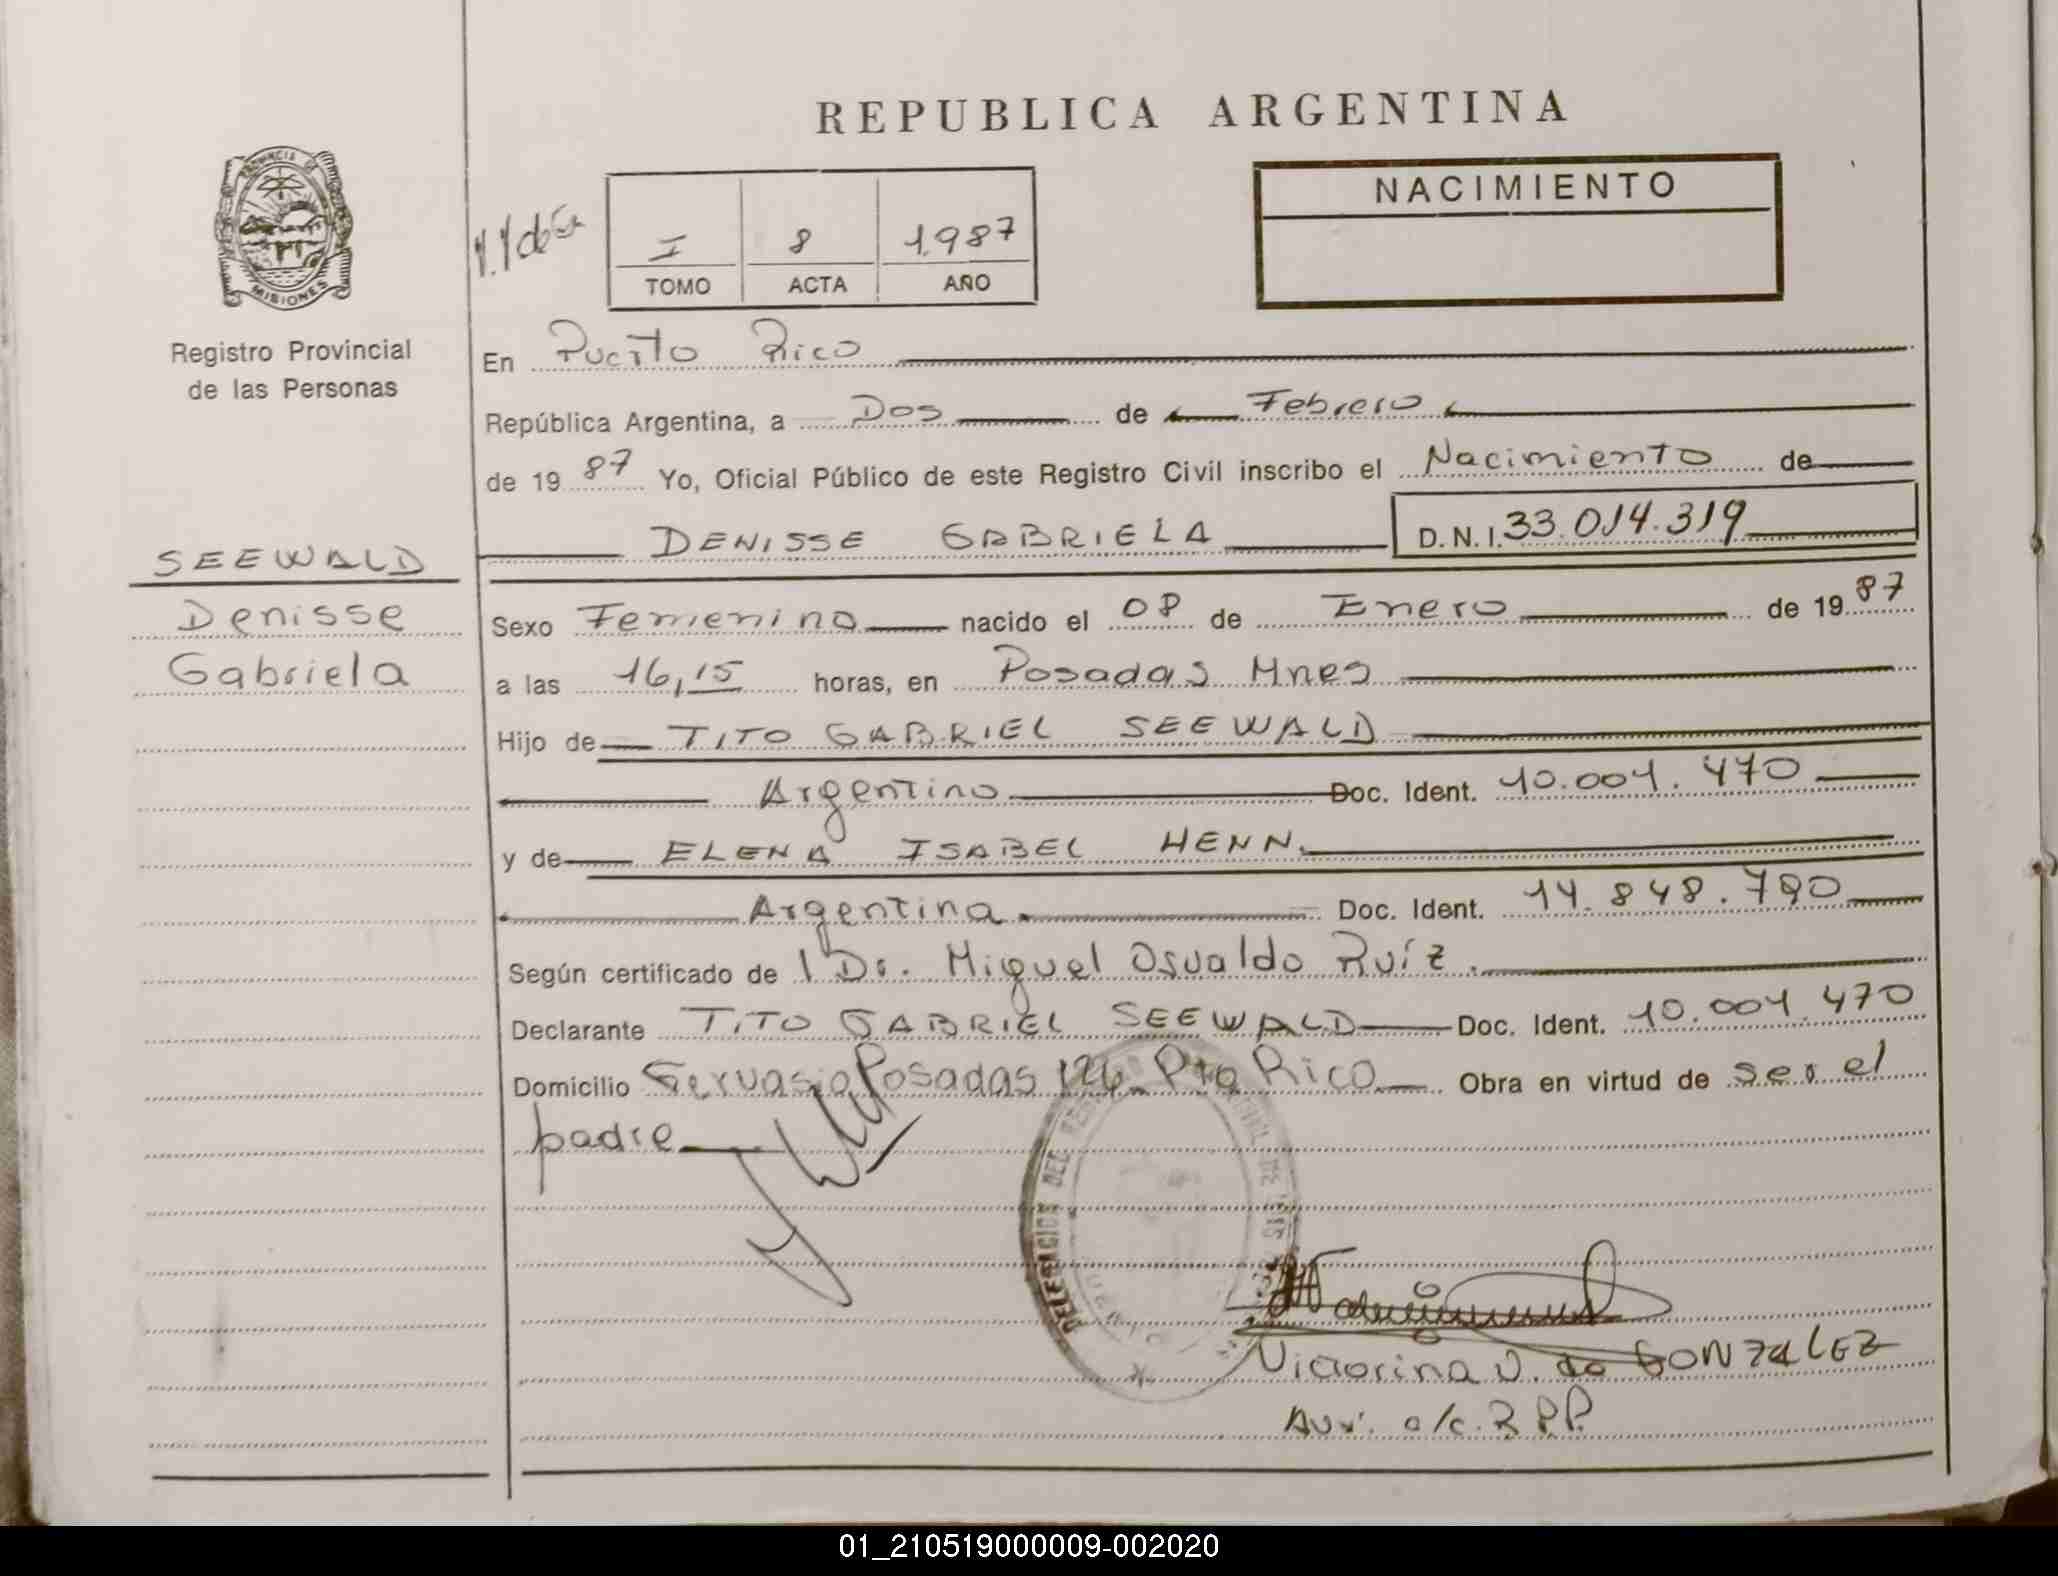 REPUBLICA ARGENTINA
PROVINCIA DE MISIONES
Registro Provincial
de las Personas
I 8 1.987
TOMO ACTA AÑO
NACIMIENTO
En Puerto Rico
República Argentina, a Dos de Febrero
de 19 87 Yo, Oficial Público de este Registro Civil inscribo el Nacimiento de
DENISSE GABRIELA D.N.I. 33.014.319
SEEWALD
Denisse
Gabriela
Sexo Femenino nacido el 08 de Enero de 19 87
a las 16,15 horas, en Posadas Mnes
Hijo de TITO GABRIEL SEEWALD
Argentino Doc. Ident. 10.001.470
y de ELENA ISABEL HENN.
Argentina Doc. Ident. 14.848.790
Según certificado de l Dr. Miguel Osvaldo Ruíz.
Declarante TITO GABRIEL SEEWALD Doc. Ident. 10.001.470
Domicilio Gervasio Posadas 126 Pto Rico Obra en virtud de ser el
padre
DELEGACION DEL
Victorina V. de GONZALEZ
Aux. a/c. R.P.P.
01_210519000009-002020